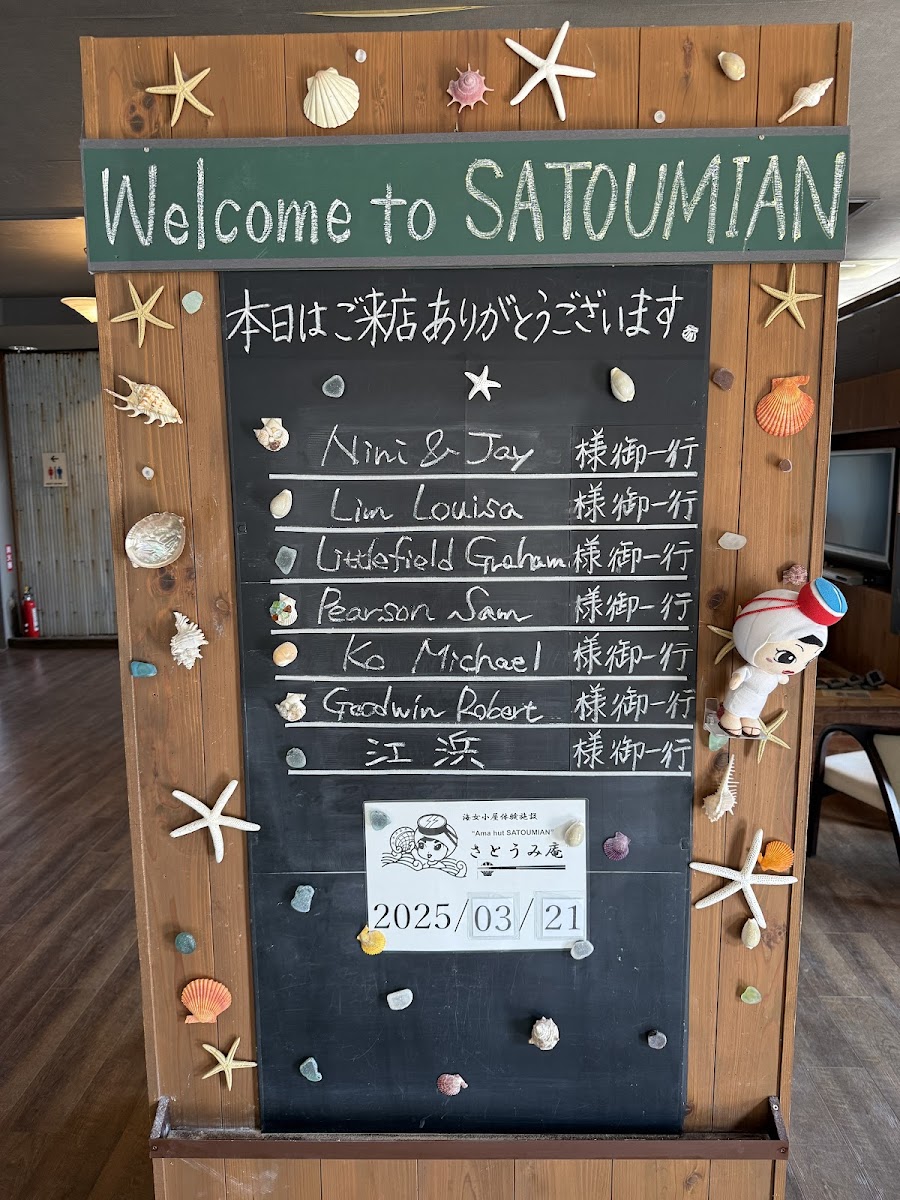 Welcome to SATOUMIAN
本日はご来店ありがとうございます。
Nini & Jay 様御一行
Lim Louisa 様御一行
Littlefield Graham 様御一行
Pearson Sam 様御一行
Ko Michael 様御一行
Goodwin Robert 様御一行
江浜 様御一行
海女小屋体験施設
"Ama hut SATOUMIAN"
さとうみ庵
2025/03/21